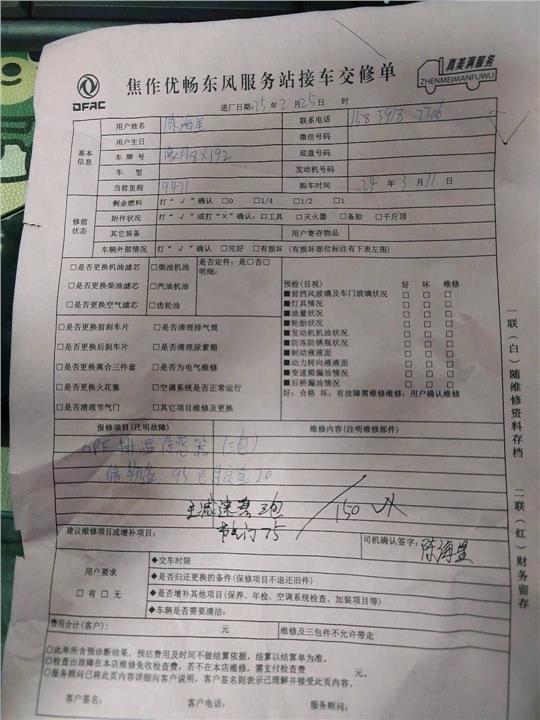 DFAC
焦作优畅东风服务站接车交修单
真美满服务
ZHENMEIMANFUWU
进厂日期:25年2月25日 时
基本信息
用户姓名 陈海星 联系电话
用户生日 微信号码
车牌号 底盘号码
车型 发动机号码
当前里程 9471 购车时间 24年3月11日
修前状态
剩余燃料 打“√”确认 □0 □1/4 □1/2 □1
附件状况 打“√”或打“×”确认：□工具 □灭火器 □备胎 □千斤顶
其它装备 用户寄存物品
车辆外部情况 打“√”确认 □完好 □有损坏（有损坏部位标注有下表左图）
□是否更换机油滤芯 □柴油机油 是否定件：是□否□
明细：
□是否更换柴油滤芯 □汽油机油
□是否更换空气滤芯 □齿轮油
预检(目视) 好 坏 维修
■前挡风玻璃及车门玻璃状况 □ □ □
■灯具情况 □ □ □
■油量状况 □ □ □
■轮胎状况 □ □ □
■发动机机油状况 □ □ □
■防冻防锈瓶状况 □ □ □
■制动液液面 □ □ □
■动力转向液液面 □ □ □
■变速箱漏油情况 □ □ □
■后桥漏油情况 □ □ □
好：合格 坏：有故障需维修维修：用户确认维修
□是否更换前刹车片 □是否清理排气筒
□是否更换后刹车片 □是否清理尿素箱
□是否更换离合三件套 □是否为电气维修
□是否更换火花塞 □空调系统是否正常运行
□是否清理节气门 □其它项目维修及更换
报修项目(注明故障) 维修内容(注明维修部件)
DPF排温传感器(三包)
储物盒 95
20
三包
节气门 75
150
建议维修项目或增补项目：
司机确认签字：陈海星
用户要求
□有□无
◆交车时限
◆是否归还更换的备件(保修项目不退还旧件)
◆是否增补其他项目(保养、年检、空调系统检查、加装项目等)
◆车辆是否需要清洁：
费用合计(客户)： 元 维修及三包件不允许带走
○此单所含预诊断结果，预估费用及时间不做结算依据，结算以结算单为准。
○检查出故障在本店维修免收检查费，若不在本店维修，需支付检查费 元。
○服务顾问已将此页内容详细向客户说明，客户签名则表示已理解并接受此页内容。
客户签名： 客户电话： 服务顾问：
一联（白）随维修资料存档
二联（红）财务留存